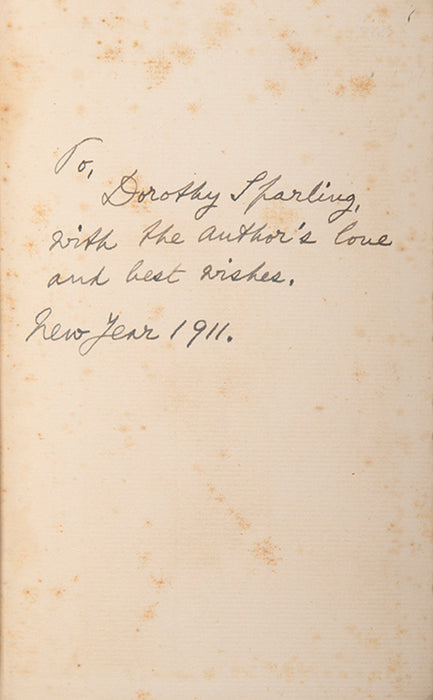 To,
Dorothy Sparling,
with the author's love
and best wishes.
New Year 1911.